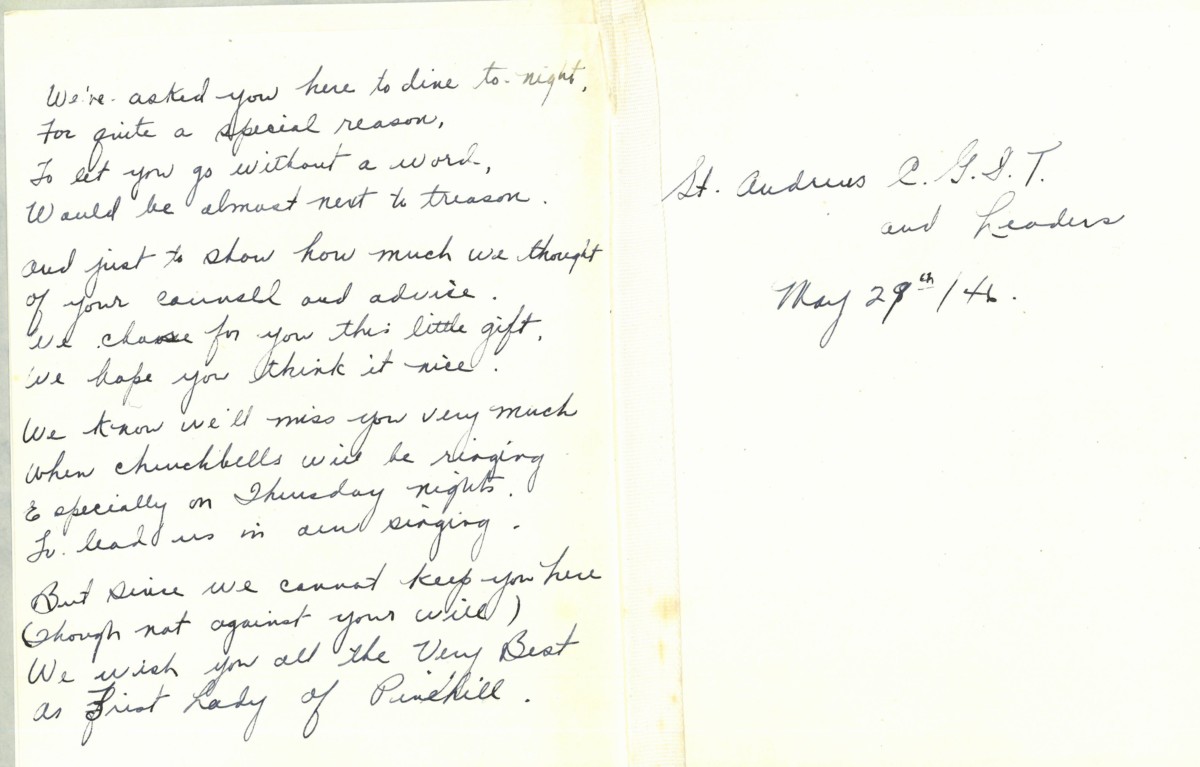 We're asked you here to dine to-night,
For quite a special reason,
To let you go without a word,
Would be almost next to treason.
And just to show how much we thought
of your counsell and advise.
We choose for you this little gift,
We hope you think it nice.
We know we'll miss you very much
when churchbells will be ringing
Especially on Thursday nights.
To lead us in our singing.
But since we cannot keep you here
(Though not against your will)
We wish you all the Very Best
as Frist Lady of Pinehill.
St. Andrews C.G.I.T.
and Leaders
May 29th/46.